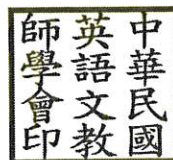 中華民國
英語文教
師學會印